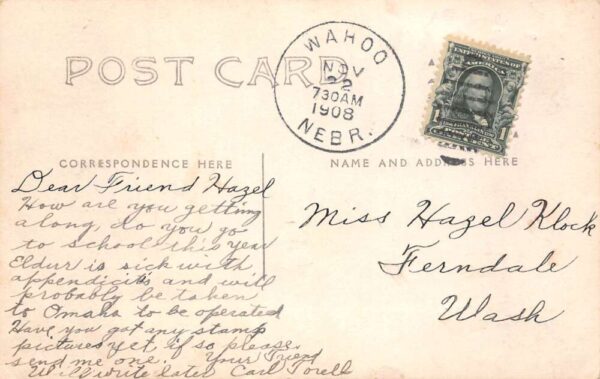 POST CARD
WAHOO
NOV
22
730AM
1908
NEBR.
UNITED STATES OF
AMERICA
1
CORRESPONDENCE HERE
NAME AND ADDRESS HERE
Dear Friend Hazel
How are you getting
along, do you go
to school this year
Eldur is sick with
appendicitis and will
probably be taken
to Omaha to be operated
Have you got any stamp
pictures yet if so please
send me one. Your Friend
Will write later Carl Torell
Miss Hazel Klock
Ferndale
Wash